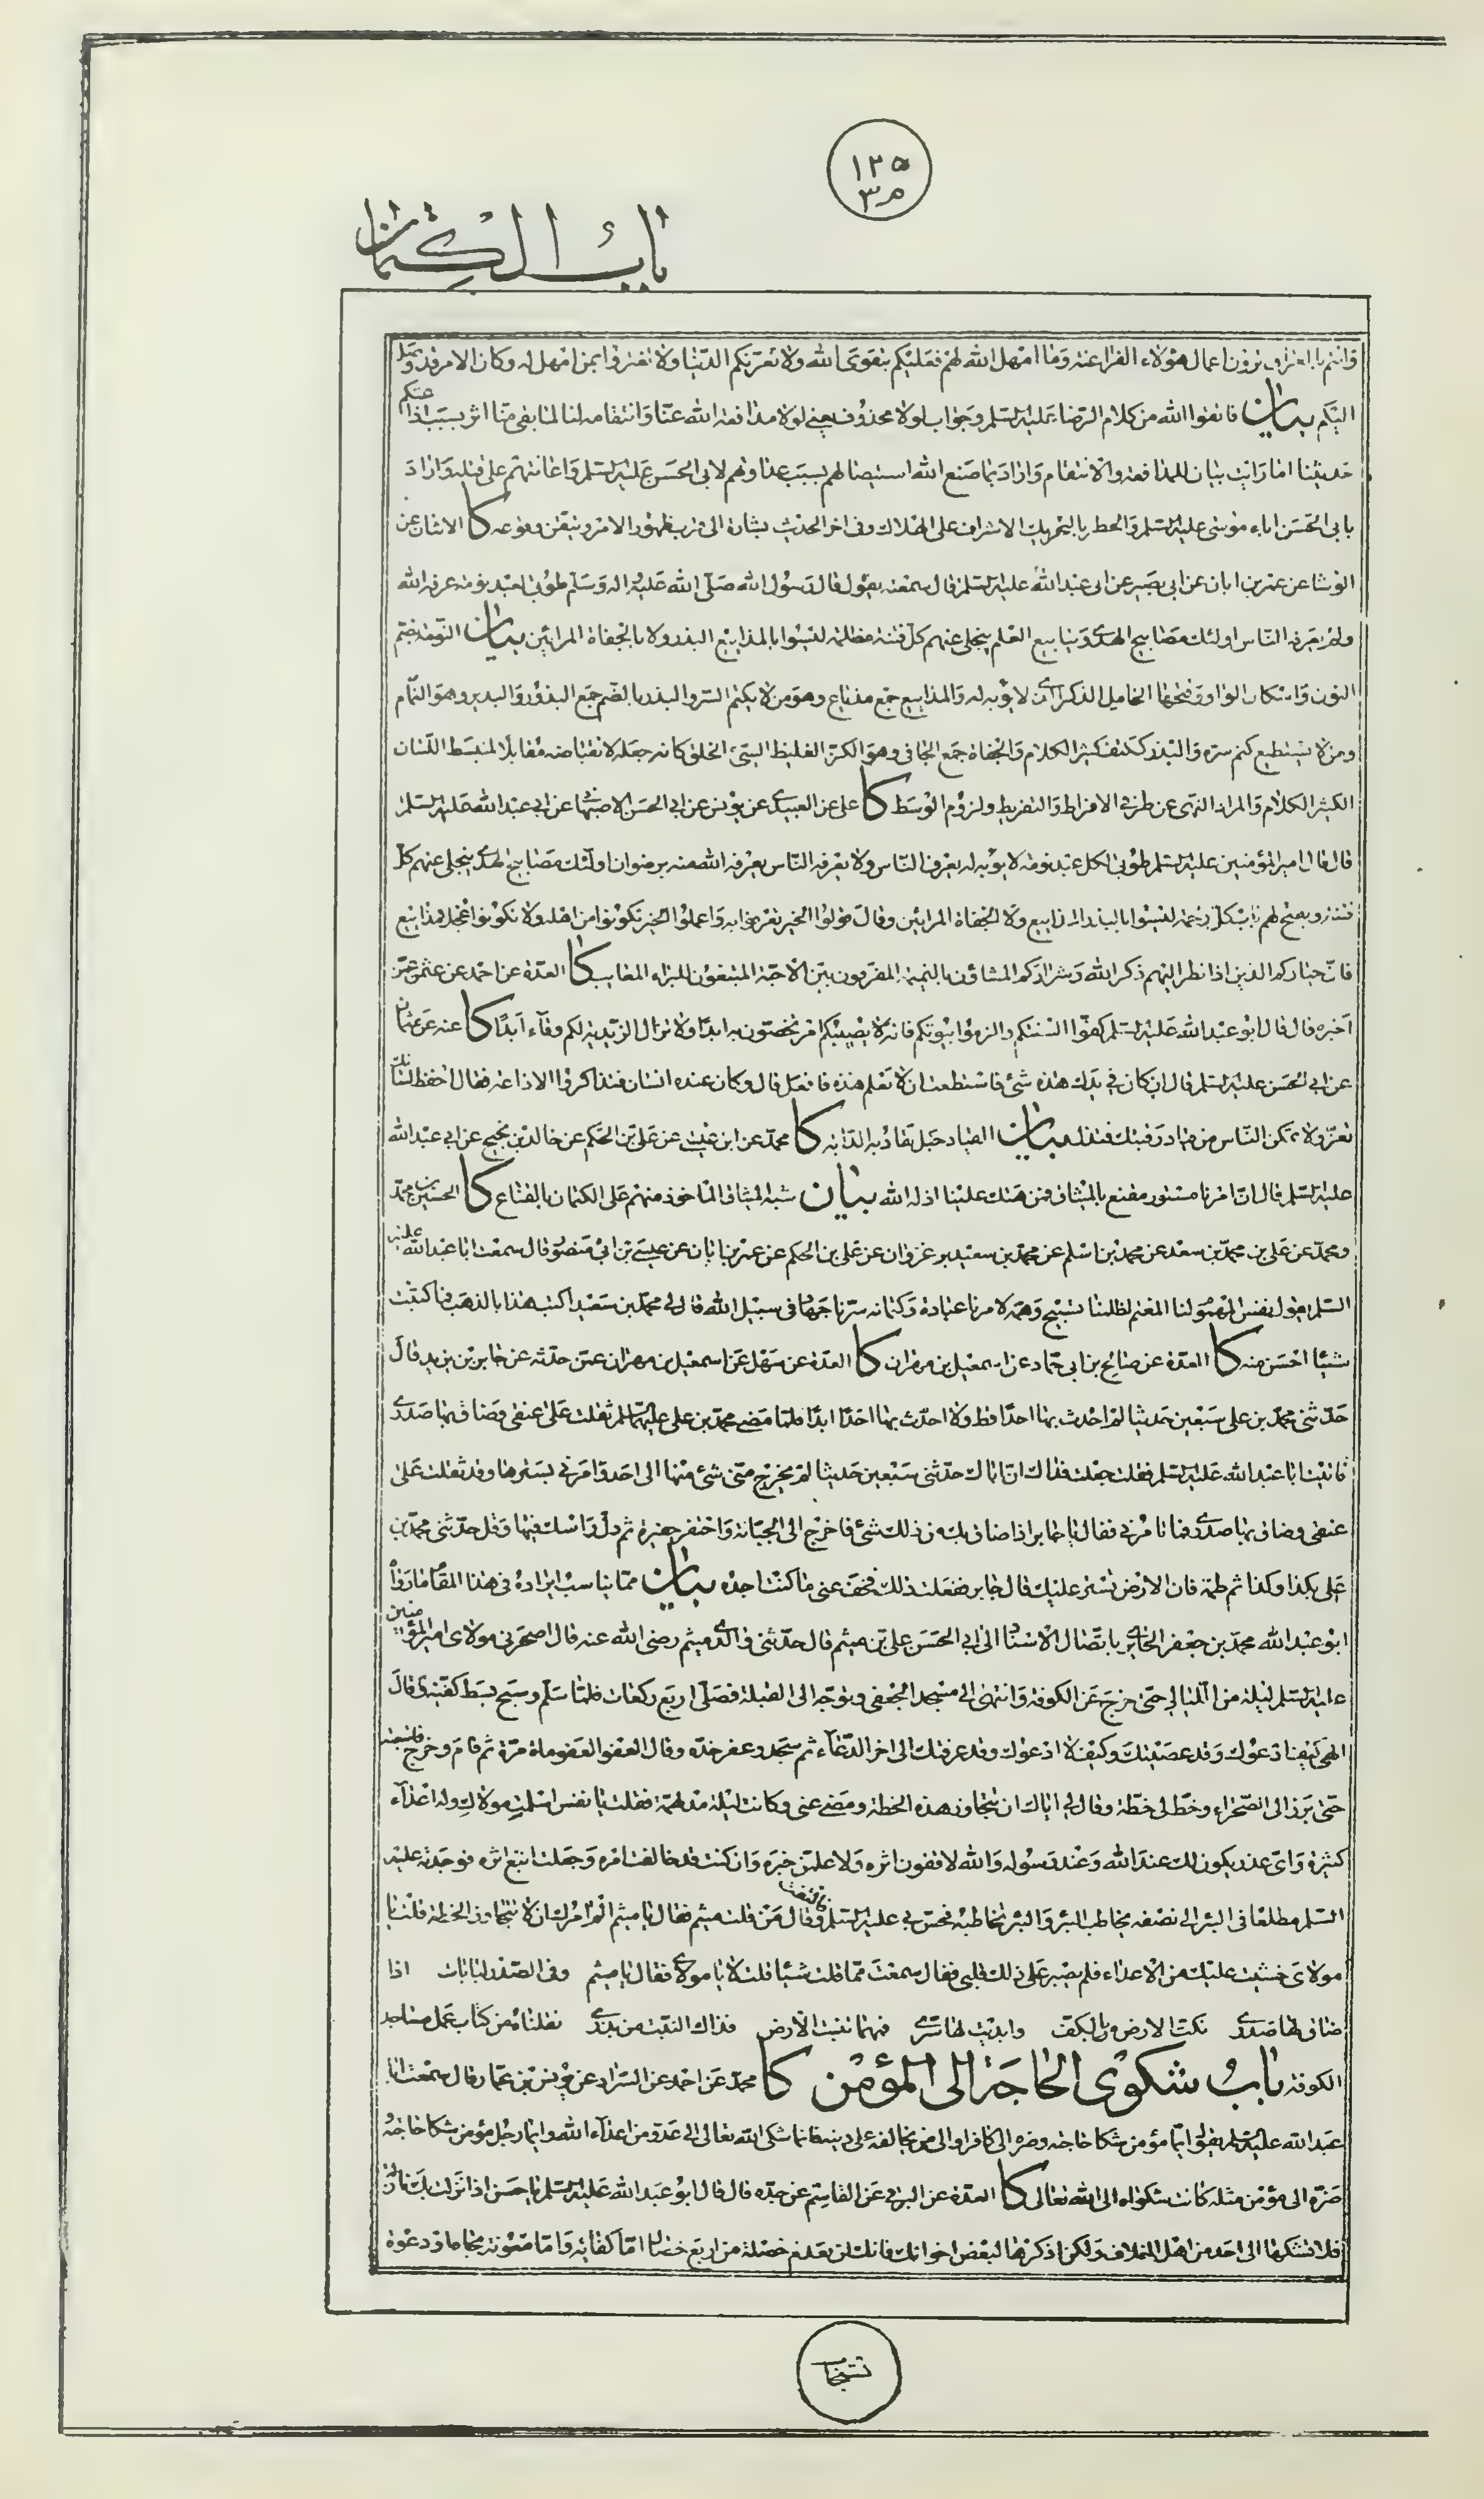 ١٣٥
٣م
باب الكتمان
وانتم بالعراق ترون اعمال هؤلاء الفراعنة وما امهل الله لهم فعليكم بتقوى الله ولا تغرنكم الدنيا ولا تغتروا بمن امهل له وكان الامر قد وصل
اليكم بيان فاتقوا الله من كلام الرضا عليه السلم وجواب لولا محذوف يعني لولا مدافعة الله عنا وانتقامه لنا لما بقي منا اثر بسبب اذاعتكم
حديثنا اما رايت بيان للمدافعة والانتقام واراد بما صنع الله استيصالهم بسبب عداوتهم لابي الحسن عليه السلم واعانتهم على قتله واراد
بابي الحسن اباه موسى عليه السلم والخطر بالتحريك الاشراف على الهلاك وفي اخر الحديث بشارة الى قرب ظهور الامر وتيقن وقوعه كا الاثنان عن
الوشا عن عمر بن ابان عن ابي بصير عن ابي عبد الله عليه السلم قال سمعته يقول قال رسول الله صلى الله عليه واله وسلم طوبى لعبد نومة عرفه الله
ولم يعرفه الناس اولئك مصابيح الهدى وينابيع العلم ينجلي عنهم كل فتنة مظلمة ليسوا بالمذاييع البذر ولا بالجفاة المرائين بيان النومة بضم
النون واسكان الواو وفتحها الخامل الذكر الذي لا يؤبه له والمذاييع جمع مذياع وهو من لا يكتم السر والبذر بالضم جمع البذور والبذير وهو النمام
ومن لا يستطيع كتم سره والبذر ككتف كثير الكلام والجفاة جمع الجافي وهو الكز الغليظ السيئ الخلق كانه جعله لانقباضه مقابلا لمنبسط اللسان
الكثير الكلام والمراد النهي عن طرفي الافراط والتفريط ولزوم الوسط كا علي عن العبيدي عن يونس عن ابي الحسن الاصبهاني عن ابي عبد الله عليه السلم
قال قال امير المؤمنين عليه السلم طوبى لكل عبد نومة لا يؤبه له يعرف الناس ولا يعرفه الناس يعرفه الله منه برضوان اولئك مصابيح الهدى ينجلي عنهم كل
فتنة ويفتح لهم باب كل رحمة ليسوا بالبذر المذاييع ولا الجفاة المرائين وقال قولوا الخير تعرفوا به واعملوا الخير تكونوا من اهله ولا تكونوا عجلا مذاييع
فان خياركم الذين اذا نظر اليهم ذكر الله وشراركم المشاؤن بالنميمة المفرقون بين الاحبة المبتغون للبراء المعايب كا العدة عن احمد عن عثمن عمن
اخبره قال قال ابو عبد الله عليه السلم كفوا السنتكم والزموا بيوتكم فانه لا يصيبكم امر تخصون به ابدا ولا تزال الزيدية لكم وقاء ابدا كا عنه عن عثمان
عن ابي الحسن عليه السلم قال ان كان في يدك هذه شئ فاستطعت ان لا تعلم هذه فافعل قال وكان عنده انسان فتذاكروا الاذاعة فقال احفظ لسانك
تعز ولا تمكن الناس من قياد رقبتك فتذل بيان القياد حبل تقاد به الدابة كا محمد عن ابن عيسى عن علي بن الحكم عن خالد بن نجيح عن ابي عبد الله
عليه السلم قال ان امرنا مستور مقنع بالميثاق فمن هتك علينا اذله الله بيان شبه الميثاق الماخوذ منهم على الكتمان بالقناع كا الحسين بن محمد
ومحمد عن علي بن محمد بن سعد عن محمد بن اسلم عن محمد بن سعيد بن غزوان عن علي بن الحكم عن عمر بن ابان عن عيسى بن ابي منصور قال سمعت ابا عبد الله عليه
السلم يقول نفس المهموم لنا المغتم لظلمنا تسبيح وهمه لامرنا عبادة وكتمانه سرنا جهاد في سبيل الله قال لي محمد بن سعيد اكتب هذا بالذهب فما كتبت
شيئا احسن منه كا العدة عن صالح بن ابي حماد عن اسمعيل بن مهران كا العدة عن سهل عن اسمعيل بن مهران عمن حدثه عن جابر بن يزيد قال
حدثني محمد بن علي سبعين حديثا لم احدث بها احدا قط ولا احدث بها احدا ابدا فلما مضى محمد بن علي عليهما السلم ثقلت على عنقي وضاق بها صدري
فاتيت ابا عبد الله عليه السلم فقلت جعلت فداك ان اباك حدثني سبعين حديثا لم يخرج مني شئ منها الى احد وامرني بسترها وقد ثقلت على
عنقي وضاق بها صدري فما تامرني فقال يا جابر اذا ضاق بك من ذلك شئ فاخرج الى الجبانة واحتفر حفيرة ثم دل راسك فيها وقل حدثني محمد بن
علي بكذا وكذا ثم طمه فان الارض تستر عليك قال جابر ففعلت ذلك فخف عني ما كنت اجده بيان مما يناسب ايراده في هذا المقام ما رواه
ابو عبد الله محمد بن جعفر الحايري باتصال الاسناد الى ابي الحسن علي بن ميثم قال حدثني والدي ميثم رضي الله عنه قال اصحرني مولاي امير المؤمنين
عليه السلم ليلة من الليالي حتى خرج عن الكوفة وانتهى الى مسجد الجعفي وتوجه الى القبلة فصلى اربع ركعات فلما سلم وسبح بسط كفيه وقال
الهي كيف ادعوك وقد عصيتك وكيف لا ادعوك وقد عرفتك الى اخر الدعاء ثم سجد وعفر خده وقال العفو العفو مائة مرة ثم قام وخرج فاتبعته
حتى برز الى الصحراء وخط لي خطة وقال لي اياك ان تتجاوز هذه الخطة ومضى عني وكانت ليلة مدلهمة فقلت يا نفس اسلمت مولاك وله اعداء
كثيرة واي عذر يكون لك عند الله وعند رسوله والله لاقفون اثره ولاعلمن خبره وان كنت قد خالفت امره وجعلت اتبع اثره فوجدته عليه
السلم مطلعا في البئر الى نصفه يخاطب البئر والبئر تخاطبه فحس بي عليه السلم فالتفت وقال من قلت ميثم فقال يا ميثم الم امرك ان لا تتجاوز الخطة قلت يا
مولاي خشيت عليك من الاعداء فلم يصبر على ذلك قلبي فقال سمعت مما قلت شيئا قلت لا يا مولاي فقال يا ميثم وفي الصدر لبانات اذا
ضاق لها صدري نكت الارض بالكف وابديت لها سري فمهما تنبت الارض فذاك النبت من بذري نقلناه من كتاب عمل مساجد
الكوفة باب شكوى الحاجة الى المؤمن كا محمد عن احمد عن السراد عن يونس بن عمار قال سمعت ابا
عبد الله عليه السلم يقول ايما مؤمن شكا حاجته وضره الى كافر او الى من يخالفه على دينه فانما شكى الله تعالى الى عدو من اعداء الله وايما رجل مؤمن شكا حاجته
ضره الى مؤمن مثله كانت شكواه الى الله تعالى كا العدة عن البرقي عن القاسم عن جده قال قال ابو عبد الله عليه السلم يا حسن اذا نزلت بك نازلة
فلا تشكها الى احد من اهل الخلاف ولكن اذكرها لبعض اخوانك فانك لن تعدم خصلة من اربع خصال اما كفاية واما معونة بجاه او دعوة
تستجاب